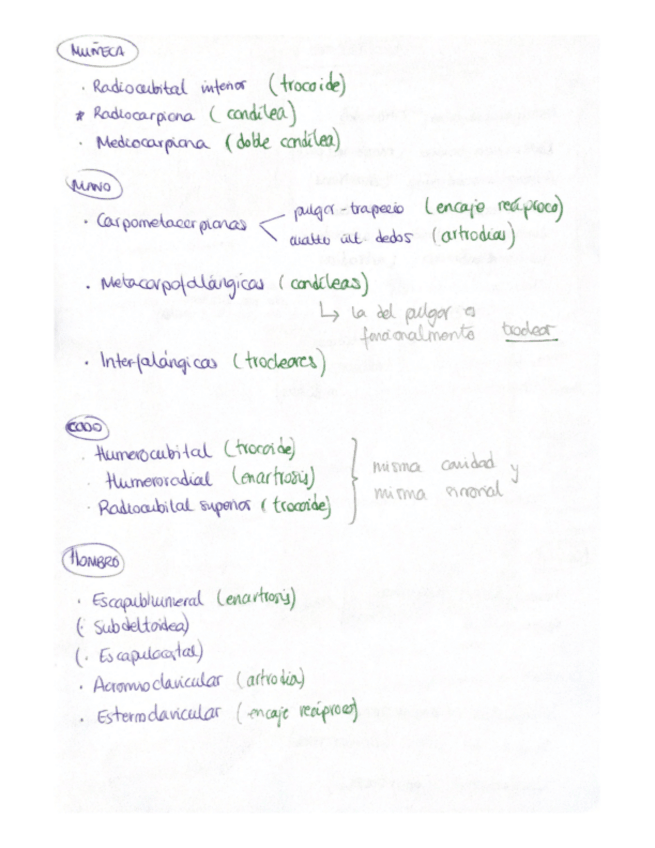 MUÑECA
· Radiocubital inferior (trocoide)
* Radiocarpiana (condílea)
· Mediocarpiana (doble condílea)
MANO
· Carpometacarpianas < pulgar-trapecio (encaje recíproco)
cuatro últ. dedos (artrodias)
· Metacarpofalángicas (condíleas)
↳ la del pulgar es
funcionalmente troclear
· Interfalángicas (trocleares)
CODO
· Humerocubital (trocoide)
· Humeroradial (enartrosis)
· Radiocubital superior (trocoide)
misma cavidad y
misma sinovial
HOMBRO
· Escapulohumeral (enartrosis)
(· Subdeltoidea)
(· Escapulocostal)
· Acromioclavicular (artrodia)
· Esternoclavicular (encaje recíproco)